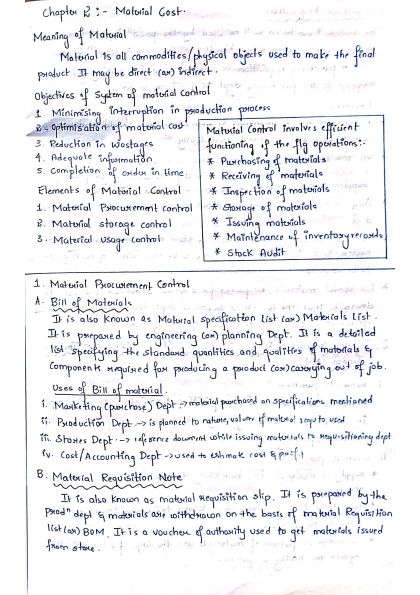 Chapter 2 :- Material Cost.
Meaning of Material
Material is all commodities/physical objects used to make the final
product. It may be direct (or) indirect.
Objectives of System of material Control
1 Minimising interruption in production process
2 Optimisation of material cost
3. Reduction in wastages
4. Adequate information
5. Completion of order in time.
Elements of Material Control
1. Material Procurement control
2. Material storage control
3. Material usage control
Material Control involves efficient
functioning of the flg operations:-
* Purchasing of materials
* Receiving of materials
* Inspection of materials
* Storage of materials
* Issuing materials
* Maintenance of inventory records
* Stock Audit
1. Material Procurement Control
A. Bill of Materials
It is also known as Material specification list (or) Materials list.
It is prepared by engineering (or) planning Dept. It is a detailed
list specifying the standard quantities and qualities of materials &
Components required for producing a product (or) carrying out of job.
Uses of Bill of material.
i. Marketing (purchase) Dept -> material purchased on specifications mentioned
ii. Production Dept -> is planned to nature, volume of material requ to used
iii. Stores Dept -> reference document while issuing materials to requisitioning dept
iv. Cost/Accounting Dept -> used to estimate cost & profit
B. Material Requisition Note
It is also known as material requisition slip. It is prepared by the
prodn dept & materials are withdrawn on the basis of material Requisition
list (or) BOM. It is a voucher of authority used to get materials issued
from store.